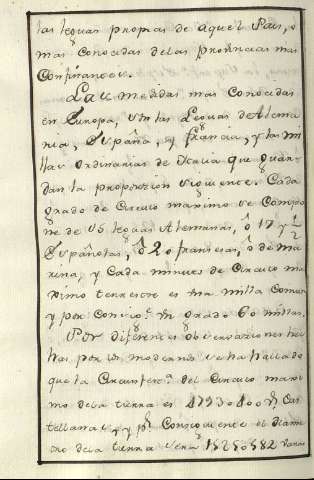 las leguas propias de aquel Pais, o
mas conocidas delas provincias mas
confinantes.
Las medidas mas conocidas
en Europa, son las Leguas de Alema
nia, España, y francia, y las mi
llas ordinarias de Italia que guar
dan la proporzion siguiente. Cada
grado de Circulo maximo se compo
ne de 15 leguas Alemanas, ô 17 y 1/2
Españolas, ô 20 francesas, ô de ma
rina, y Cada minuto de Circulo ma
ximo terrestre es una milla Comun
y por Consig.te un grado 60 millas.
Por diferentes observaciones he
chas por los modernos se ha hallado
que la Circunfer.a del Circulo maxi
mo dela tierra es Cas
tellanas, y p.r Consiguiente el diame
tro dela tierra sera varas